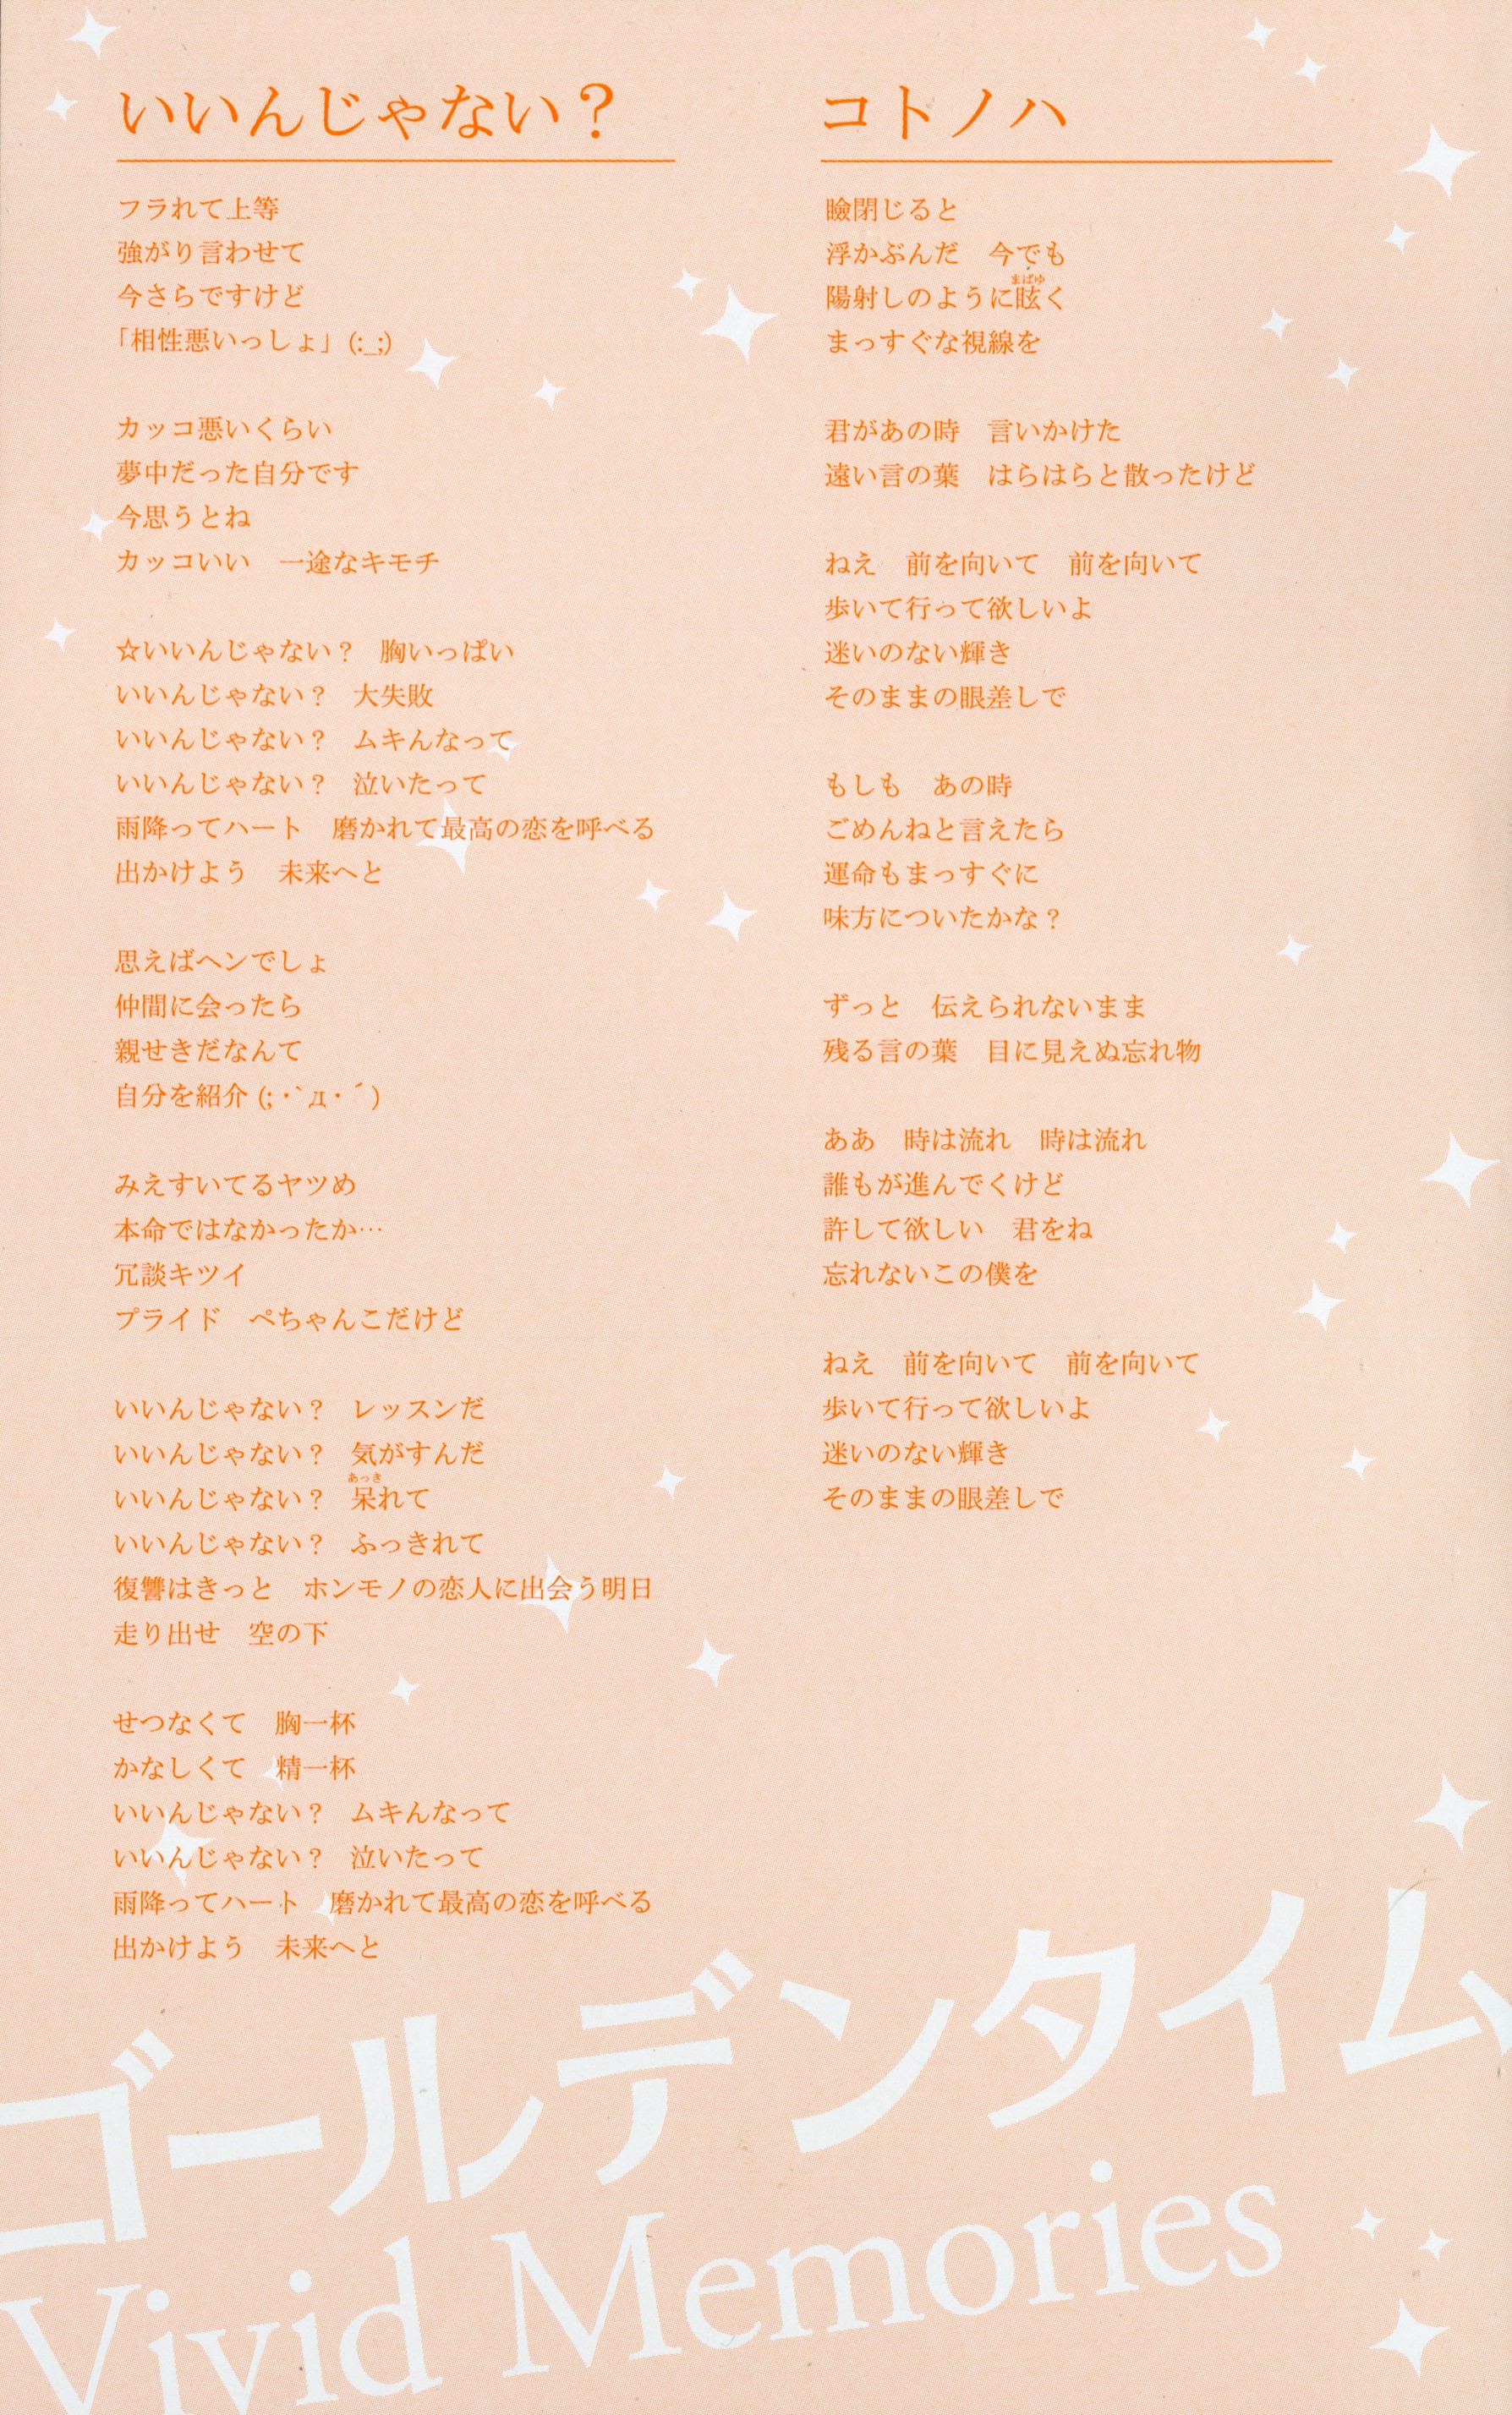 いいんじゃない？
フラれて上等
強がり言わせて
今さらですけど
「相性悪いっしょ」(:_;)
カッコ悪いくらい
夢中だった自分です
今思うとね
カッコいい　一途なキモチ
☆いいんじゃない？　胸いっぱい
いいんじゃない？　大失敗
いいんじゃない？　ムキんなって
いいんじゃない？　泣いたって
雨降ってハート　磨かれて最高の恋を呼べる
出かけよう　未来へと
思えばヘンでしょ
仲間に会ったら
親せきだなんて
自分を紹介 (; ･`д･´)
みえすいてるヤツめ
本命ではなかったか…
冗談キツイ
プライド　ぺちゃんこだけど
いいんじゃない？　レッスンだ
いいんじゃない？　気がすんだ
あっき
いいんじゃない？　呆れて
いいんじゃない？　ふっきれて
復讐はきっと　ホンモノの恋人に出会う明日
走り出せ　空の下
せつなくて　胸一杯
かなしくて　精一杯
いいんじゃない？　ムキんなって
いいんじゃない？　泣いたって
雨降ってハート　磨かれて最高の恋を呼べる
出かけよう　未来へと
コトノハ
瞼閉じると
浮かぶんだ　今でも
まばゆ
陽射しのように眩く
まっすぐな視線を
君があの時　言いかけた
遠い言の葉　はらはらと散ったけど
ねえ　前を向いて　前を向いて
歩いて行って欲しいよ
迷いのない輝き
そのままの眼差しで
もしも　あの時
ごめんねと言えたら
運命もまっすぐに
味方についたかな？
ずっと　伝えられないまま
残る言の葉　目に見えぬ忘れ物
ああ　時は流れ　時は流れ
誰もが進んでくけど
許して欲しい　君をね
忘れないこの僕を
ねえ　前を向いて　前を向いて
歩いて行って欲しいよ
迷いのない輝き
そのままの眼差しで
ゴールデンタイム
Vivid Memories